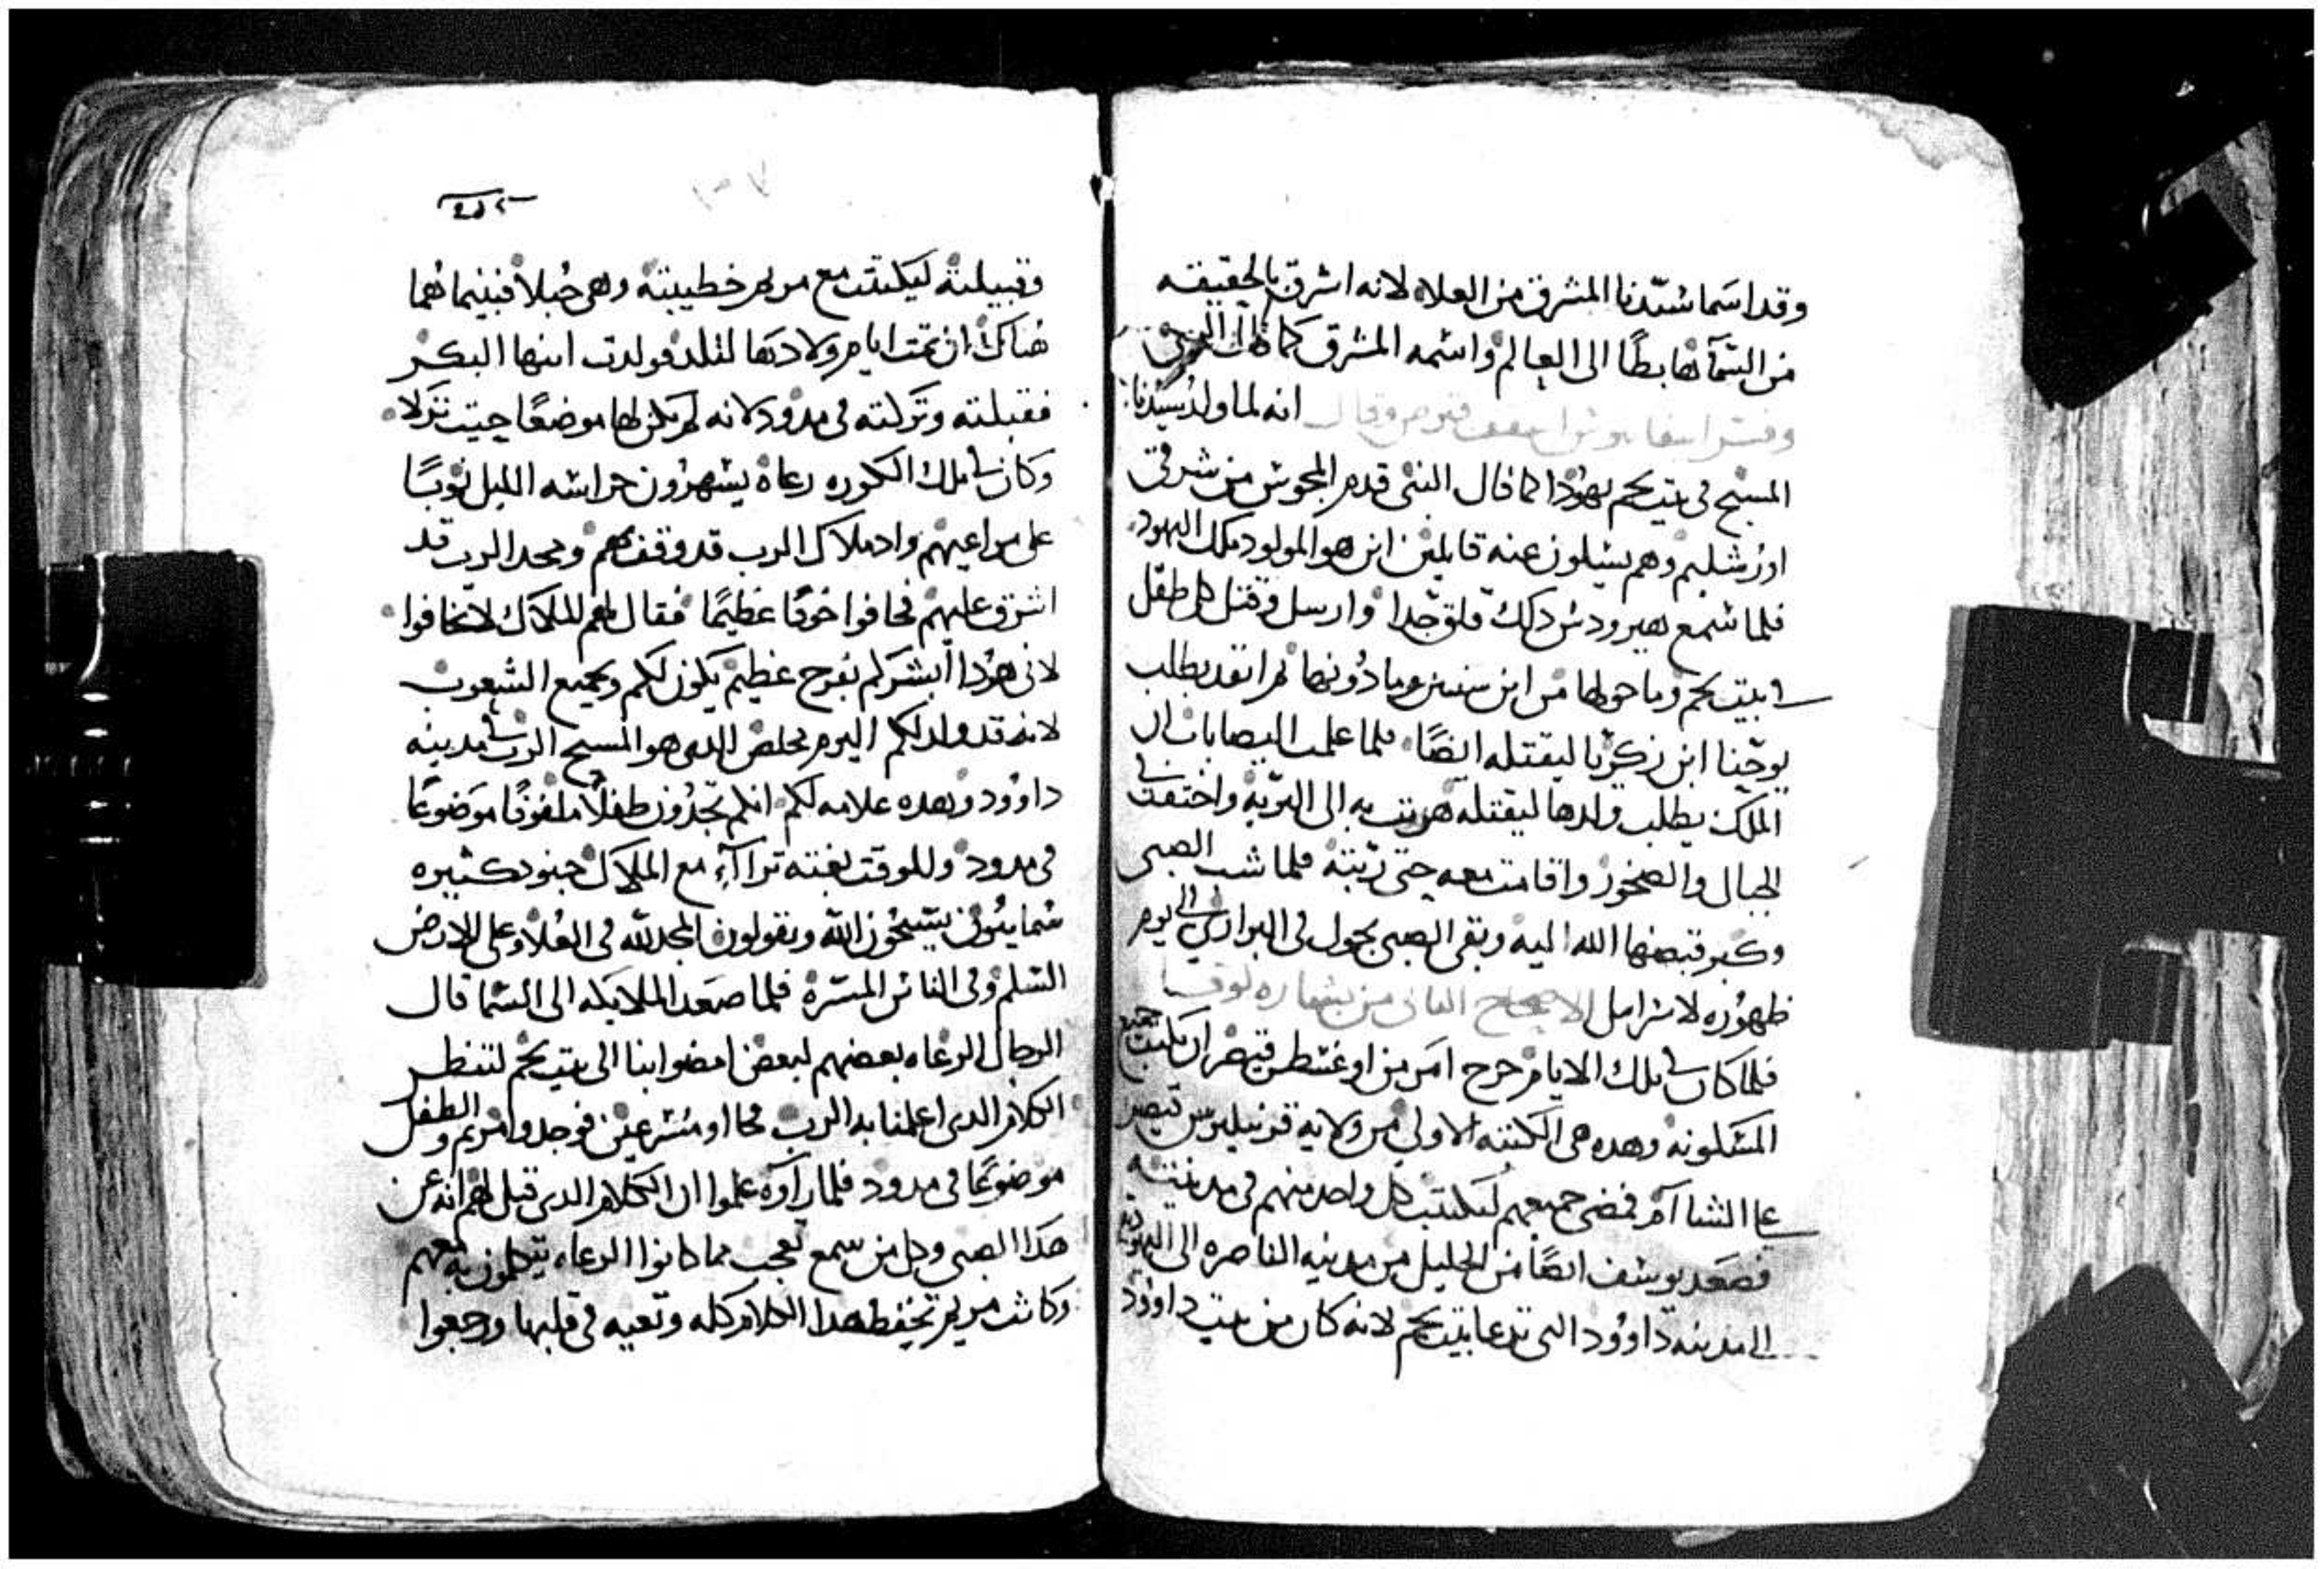 وقد اسما سيدنا المشرق من العلاء لانه اشرق بالحقيقه
من السمآ هابطًا الى العالم واسمه المشرق كما قال النبي
وفسر ايضا اسقف قبرص وقال انه لما ولد سيدنا
المسيح فى بيت لحم يهودا كما قال النبى قدم المجوس من شرقى
اورشليم وهم يسيلون عنه قايلين اين هو المولود ملك اليهود
فلما سمع هيرودس دلك قلق جدا وارسل وقتل كل طفل
في بيت لحم وما حولها من ابن سنتين وما دونها ثم انفد يطلب
يوحنا ابن زكريا ليقتله ايضًا فلما علمت اليصابات ان
الملك يطلب ولدها ليقتله هربت به الى البريه واختفت في
الجبال والصخور واقامت معه حتى ربته فلما شب الصبى
وكبر قبضها الله اليه وبقى الصبى يجول فى البرارى الى يوم
ظهوره لاسراييل الاصحاح الثانى من بشاره لوقا
فلما كان في تلك الايام خرج امر من اوغسطس قيصر ان يكتتب جميع
المسكونه وهده هى الكتبه الاولى من ولايه قرنيليوس قيصر
على الشاآم فمضى جميعهم ليكتتب كل واحد منهم فى مدينته
فصعد يوسف ايضًا من الجليل من مدينه الناصره الى اليهوديه
الى مدينه داوود التى تدعا بيت لحم لانه كان من بيت داوود
وقبيلته ليكتتب مع مريم خطيبته وهى حبلا فبينما هما
هناك ان تمت ايام ولادتها لتلد فولدت ابنها البكر
فقبلته وتركته فى مدود لانه لم يكن لها موضعًا حيت نزلا
وكان في تلك الكوره رعاة يسهرون حراسه الليل نوبًا
على مراعيهم واد ملاك الرب قد وقف بهم ومجد الرب قد
اشرق عليهم فخافوا خوفًا عظيمًا فقال لهم الملاك لا تخافوا
لانى هودا ابشركم بفرح عظيم يكون لكم ولجميع الشعوب
لانه قد ولد لكم اليوم مخلص الدى هو المسيح الرب في مدينه
داوود وهده علامه لكم انكم تجدون طفلًا ملفوفًا موضوعًا
فى مدود وللوقت بغته تراآء مع الملاك جنود كثيره
سماييون يسبحون الله ويقولون المجد لله فى العلاء وعلى الارض
السلم وفى الناس المسرة فلما صعد الملايكه الى السما قال
الرجال الرعاه بعضهم لبعض امضوا بنا الى بيت لحم لننظر
الكلام الدى اعلمنا به الرب فجااو مسرعين فوجدوا مريم والطفل
موضوعًا فى مدود فلما راوه علموا ان الكلام الدى قيل لهم انه عن
هدا الصبى وكل من سمع تعجب مما كانوا الرعاه يتكلمون به معهم
وكانت مريم تحفظ هدا الكلام كله وتعيه فى قلبها ورجعوا